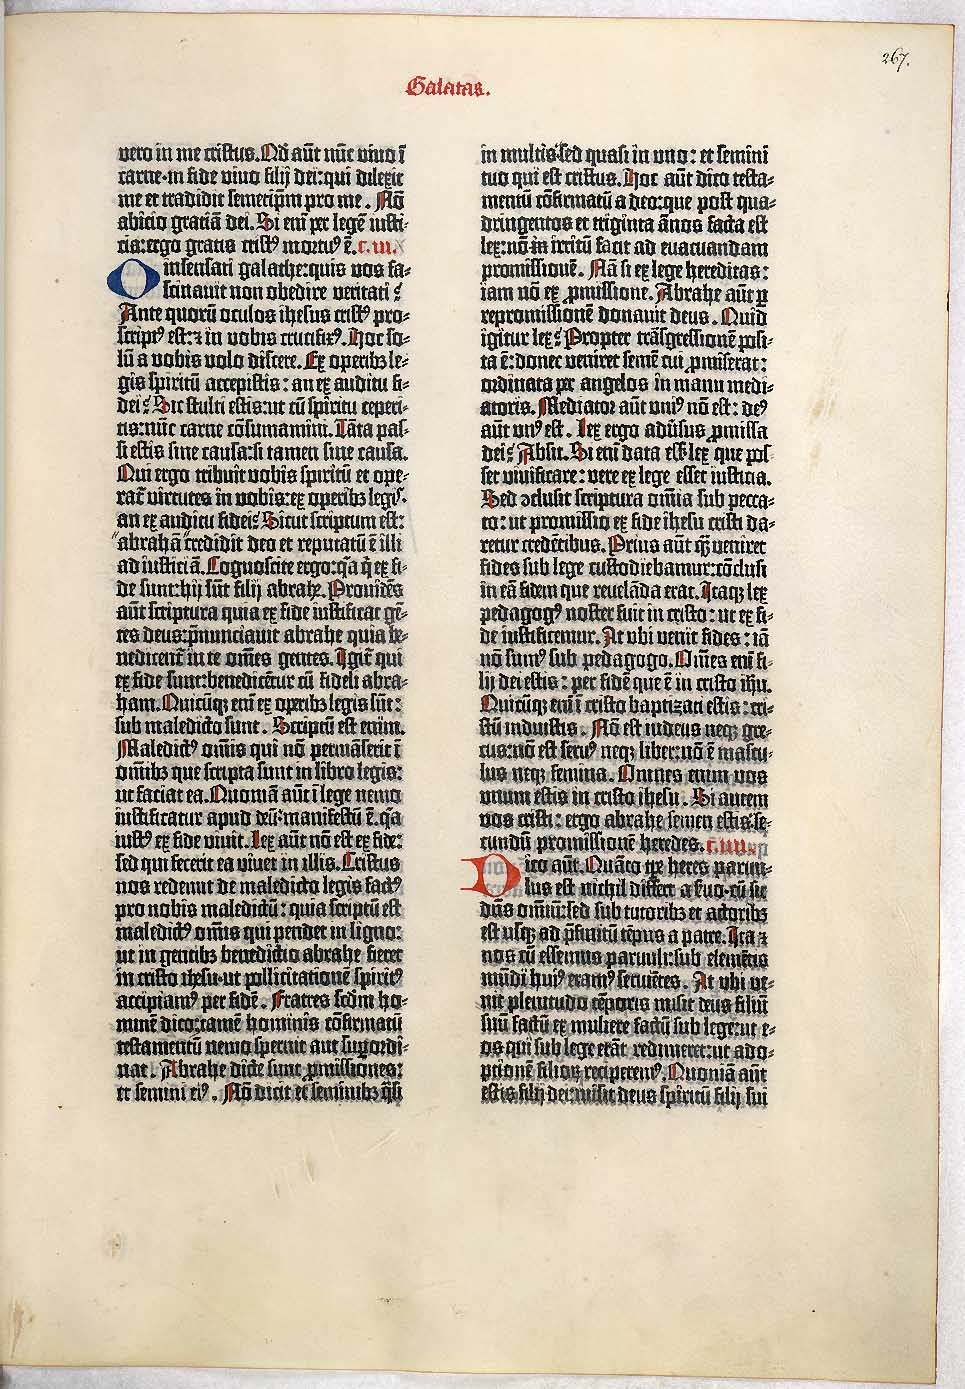 267.
Galatas.
vero in me cristus. Nō aūt nūc vivo ī
carne·in fide vivo filij dei:qui dilexit
me et tradidit semetip̄m pro me. Nō
abicio gratiā dei. Si enī per legē iusti-
cia:ergo gratis cristꝰ mortuꝰ ē. c. iii.
O insensati galathe:quis vos fa-
scinavit non obedire veritati?
Ante quorū oculos ihesus cristꝰ pro-
scriptꝰ est:⁊ in vobis crucifixꝰ. Hoc so-
lū a vobis volo discere. Ex operibꝫ le-
gis spiritū accepistis: an ex auditu fi-
dei? Sic stulti estis:ut cū spiritu ceperi-
tis:nūc carne cōsumamini. Tāta pas-
si estis sine causa:si tamen sine causa.
Qui ergo tribuit vobis spiritū et ope-
rat̄ virtutes in vobis:ex operibꝫ legis.
an ex auditu fidei? Sicut scriptum est:
abrahā credidit deo et reputatū ē illi
ad iusticiā. Cognoscite ergo:q̄a q̄ ex fi-
de sunt:hij sūt filij abrahe. Providēs
aūt scriptura quia ex fide iustificat gē-
tes deus:p̄nunciavit abrahe quia be-
nedicent̄ in te om̄es gentes. Igit̄ qui
ex fide sunt:benedicētur cū fideli abra-
ham. Quicūqꝫ enī ex operibꝫ legis sūt:
sub maledicto sunt. Scriptū est enim.
Maledictꝰ om̄is qui nō permāserit ī
om̄ibꝫ que scripta sunt in libro legis:
ut faciat ea. Quoniā aūt ī lege nemo
iustificatur apud deū:manifestū ē. q̄a
iustꝰ ex fide vivit. Lex aūt nō est ex fide:
sed qui fecerit ea vivet in illis. Cristus
nos redemit de maledicto legis factꝰ
pro nobis maledictū: quia scriptū est
maledictꝰ om̄is qui pendet in ligno:
ut in gentibꝫ benedictio abrahe fieret
in cristo ihesu·ut pollicitationē spiritꝰ
accipiamꝰ per fidē. Fratres scd̄m ho-
minē dico:tamē hominis cōfirmatū
testamentū nemo spernit aut suꝑordi-
nat. Abrahe dicte sunt ꝓmissiones:
et semini eiꝰ. Nō dicit et seminibꝫ q̄si
in multis:sed quasi in uno: et semini
tuo qui est cristus. Hoc aūt dico testa-
mentū cōfirmatū a deo:que post qua-
dringentos et triginta ānos facta est
lex:nō in irritū facit ad evacuandam
promissionē. Nā si ex lege hereditas:
iam nō ex ꝓmissione. Abrahe aūt ꝑ
repromissionē donavit deus. Quid
igitur lex? Propter trāsgressionē posi-
ta ē: donec veniret semē cui ꝓmiserat:
ordinata per angelos in manu medi-
atoris. Mediator aūt uniꝰ nō est: deꝰ
aūt unꝰ est. Lex ergo adūsus ꝓmissa
dei? Absit. Si enī data ess̄ lex que pos-
set vivificare: vere ex lege esset iusticia.
Sed ɔclusit scriptura om̄ia sub pecca-
to: ut promissio ex fide ihesu cristi da-
retur credentibus. Prius aūt qꝫ veniret
fides sub lege custodiebamur:cōclusi
in eā fidem que revelāda erat. Itaqꝫ lex
pedagogꝰ noster fuit in cristo: ut ex fi-
de iustificemur. At ubi venit fides: iā
nō sumꝰ sub pedagogo. Om̄es enī fi-
lij dei estis: per fidē que ē in cristo ihū.
Quicūqꝫ enī ī cristo baptizati estis: cri-
stū induistis. Nō est iudeus neqꝫ gre-
cus:nō est servꝰ neqꝫ liber:nō ē mascu-
lus neqꝫ femina. Omnes enim vos
unum estis in cristo ihesu. Si autem
vos cristi: ergo abrahe semen estis:se-
cundū promissionē heredes. c. iiii.
Dico aūt. Quāto tꝑe heres parvu-
lus est nichil differt a servo·cū sit
dn̄s omniū:sed sub tutoribꝫ et actoribꝫ
est usqꝫ ad p̄finitū tēpus a patre. Ita ⁊
nos cū essemus parvuli:sub elemētis
mūdi huiꝰ eramꝰ servientes. At ubi ve-
nit plenitudo tēporis misit deus filiū
suū factū ex muliere factū sub lege:ut e-
os qui sub lege erāt redimeret:ut ado-
ptionē filioꝝ reciperemꝰ. Quoniā aūt
estis filij dei:misit deus spiritū filij sui